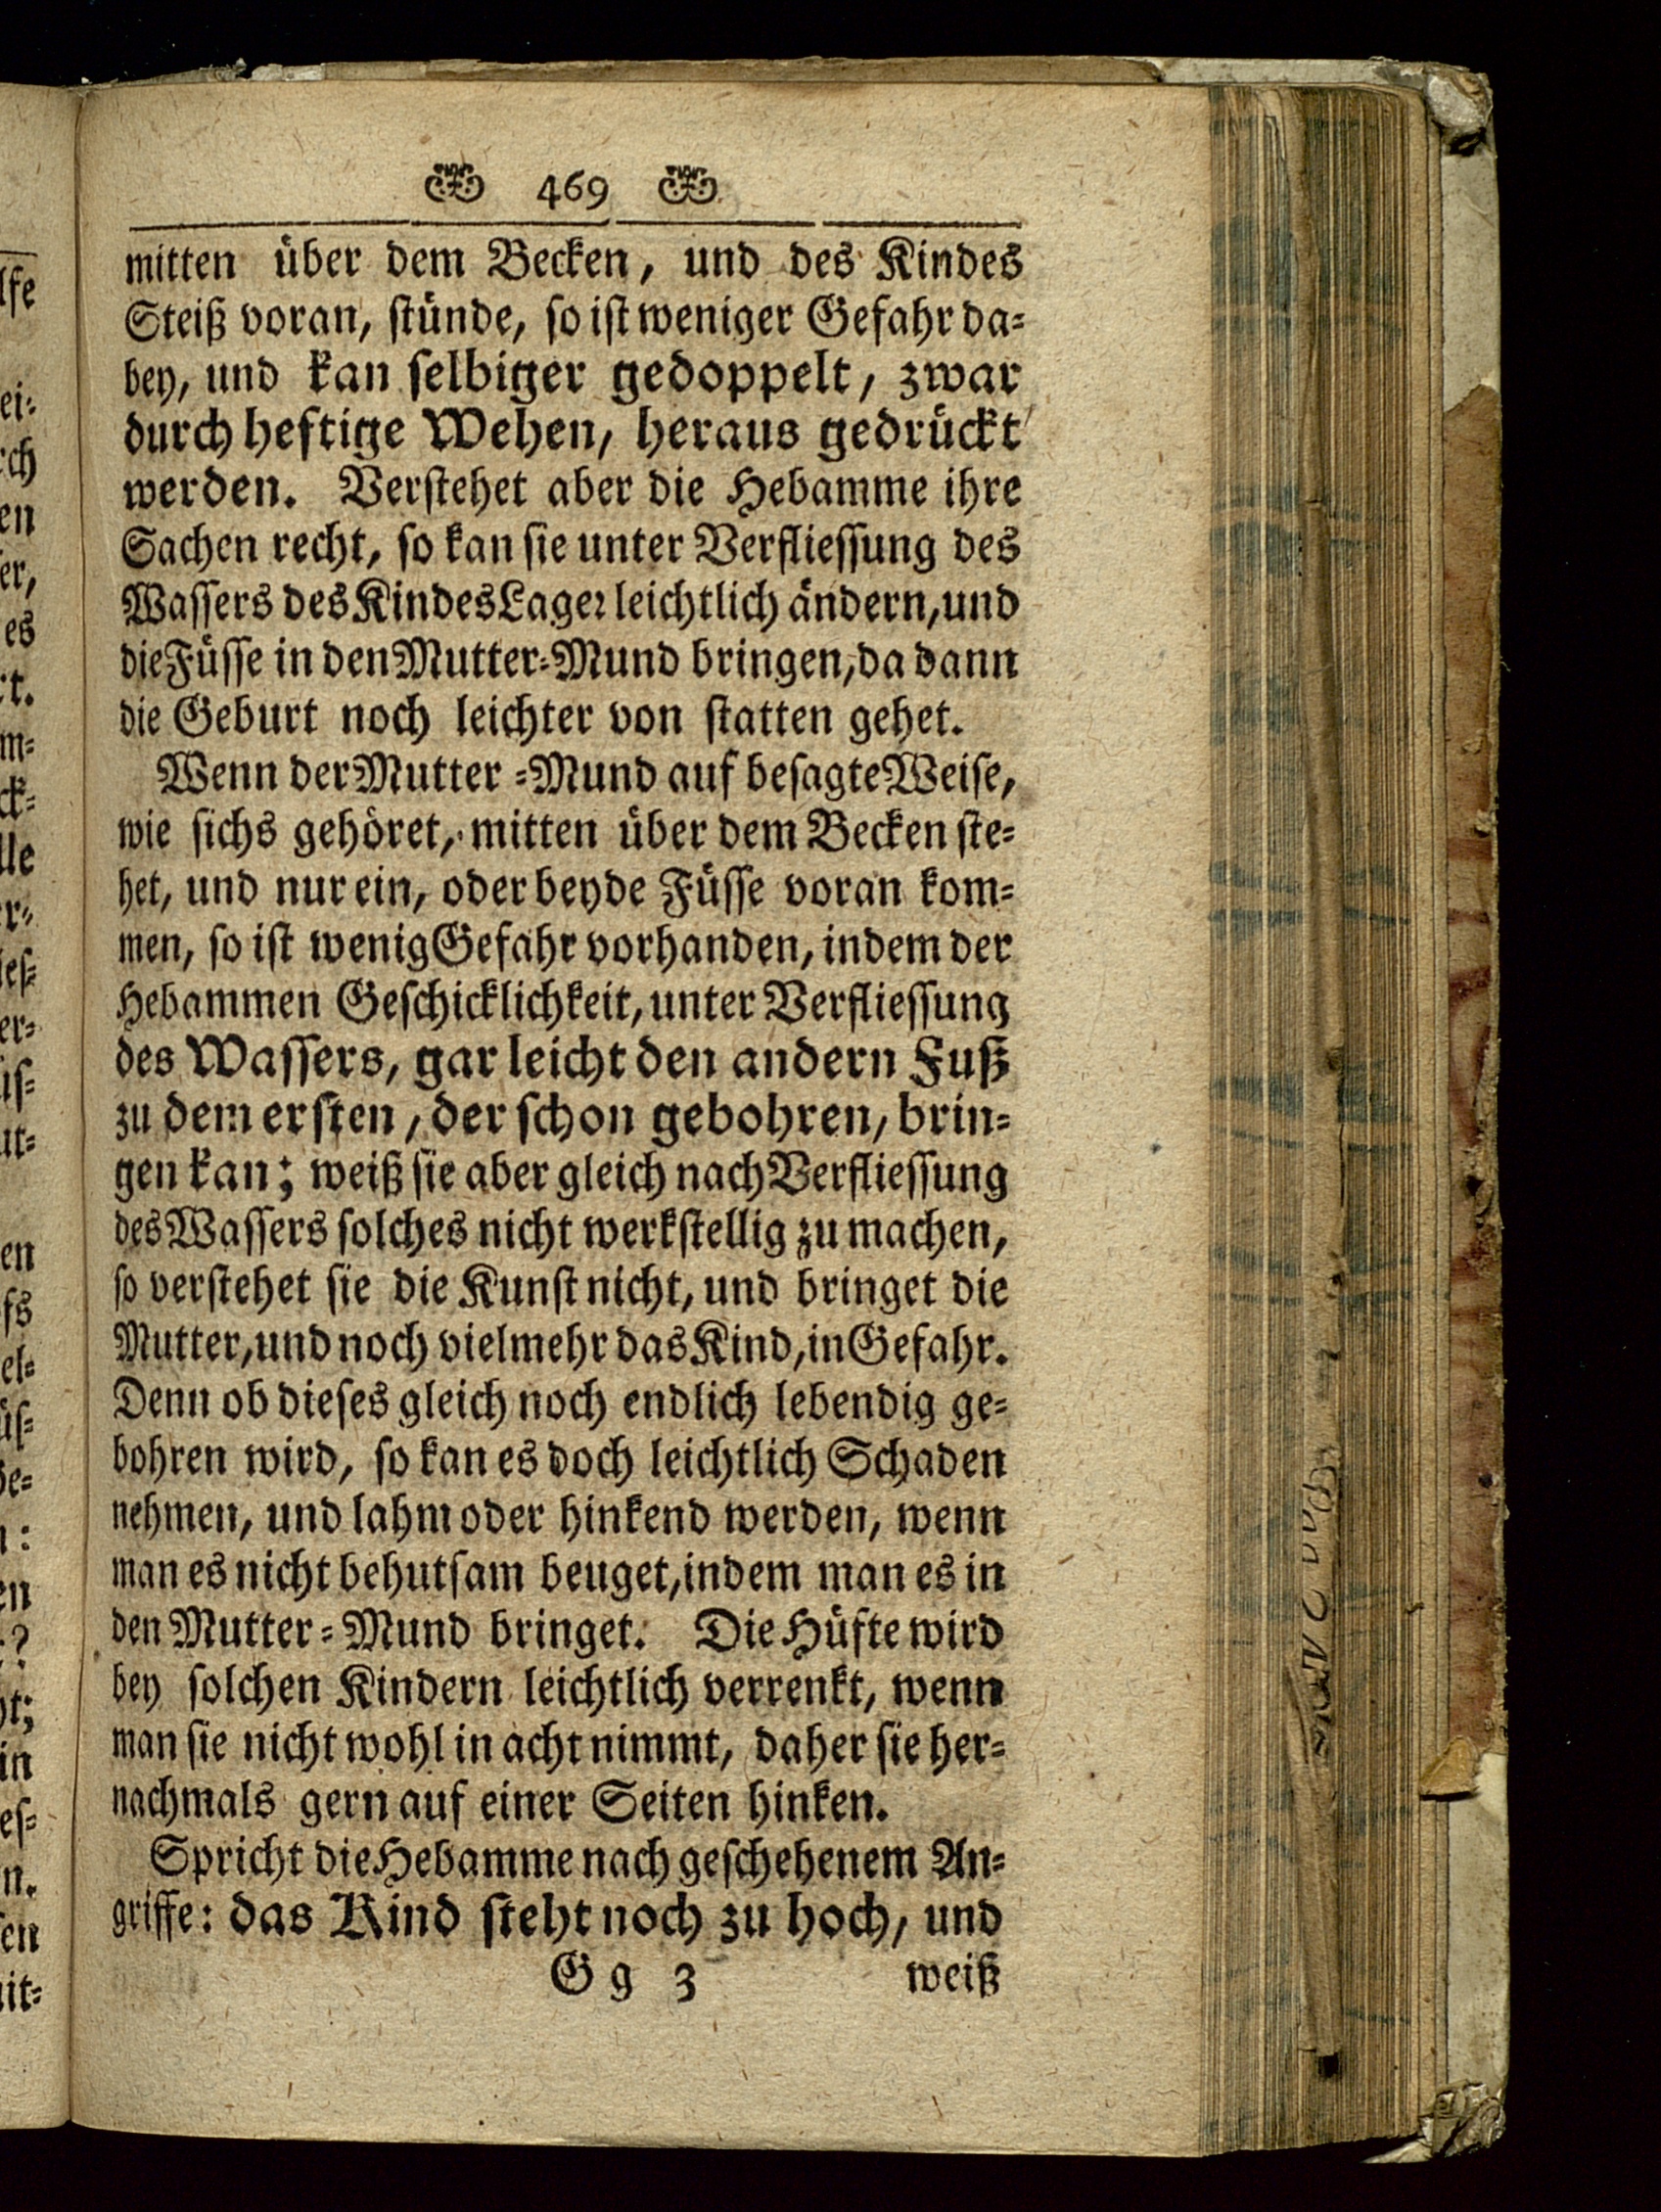 469
mitten über dem Becken, und des Kindes
Steiß voran, stünde, so ist weniger Gefahr da-
bey, und kan selbiger gedoppelt, zwar
durch heftige Wehen, heraus gedrückt
werden. Verstehet aber die Hebamme ihre
Sachen recht, so kan sie unter Verfliessung des
Wassers des Kindes Lager leichtlich ändern, und
die Füsse in den Mutter-Mund bringen, da dann
die Geburt noch leichter von statten gehet.
Wenn der Mutter-Mund auf besagte Weise,
wie sichs gehöret, mitten über dem Becken ste-
het, und nur ein, oder beyde Füsse voran kom-
men, so ist wenig Gefahr vorhanden, indem der
Hebammen Geschicklichkeit, unter Verfliessung
des Wassers, gar leicht den andern Fuß
zu dem ersten, der schon gebohren, brin-
gen kan; weiß sie aber gleich nach Verfliessung
des Wassers solches nicht werkstellig zu machen,
so verstehet sie die Kunst nicht, und bringet die
Mutter, und noch vielmehr das Kind, in Gefahr.
Denn ob dieses gleich noch endlich lebendig ge-
bohren wird, so kan es doch leichtlich Schaden
nehmen, und lahm oder hinkend werden, wenn
man es nicht behutsam beuget, indem man es in
den Mutter-Mund bringet. Die Hüfte wird
bey solchen Kindern leichtlich verrenkt, wenn
man sie nicht wohl in acht nimmt, daher sie her-
nachmals gern auf einer Seiten hinken.
Spricht die Hebamme nach geschehenem An-
griffe: das Kind steht noch zu hoch, und
Gg 3 weiß